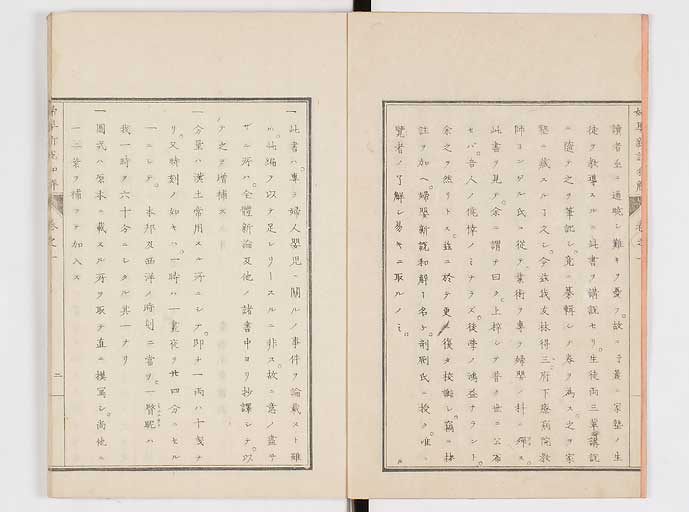 讀者至ニ通曉シ難キヲ憂フ。故ニ予嘗ニ家塾ノ生
徒ヲ敎導スルニ此書ヲ講説セリ。生徒兩三輩講説
ニ隨テ之ヲ筆記シ。竟ニ纂輯シテ卷ヲ爲ス。之ヲ家
塾ニ藏スル了久シ。今玆我友林得三。府下療病院敎
師ヨンゲル氏ニ從テ業術ヲ專ラ婦嬰ノ科ニ殫ス。
此書ヲ見テ余ニ謂テ曰ク。上梓シテ普ク世ニ公布
セバ。吾人ノ僥倖ノミナラズ。後學ノ鴻益ナラント。
余之ヲ然リトス。玆ニ於テ更ニ復タ校讐シ。竊ニ梅
註ヲ加ヘ。婦嬰新説和解ト名ケ。剞劂氏ニ授ク。唯
覽者ノ了解シ易キニ取ルノミ。
婦嬰新説和解 卷之一
一此書ハ。專ラ婦人嬰兒ニ關ルノ事件ヲ論載スト雖
ハ。此編ヲ以テ足レリースルニ非ス。故ニ意ノ盡サ
ザル所ハ。全體新論及他ノ諸書中ヨリ抄譯シテ。以
テ之ヲ增補ス
一分量ハ漢土常用スル所ニシテ。即十一兩ハ十戔ナ
リ。又時刻ノ如キハ。一時ハ一晝夜ヲ廿四分ニセル
一ニシテ。本邦及西洋ノ時刻ニ當リ。一瞥眠ハ
我一時ヲ六十分ニシタル其一ナリ
一圖式ハ原本ニ載スル所ヲ取テ直ニ模寫シ。尚他ニ
一二葉ヲ補フテ加入ス
婦嬰新説和解 卷之一 二